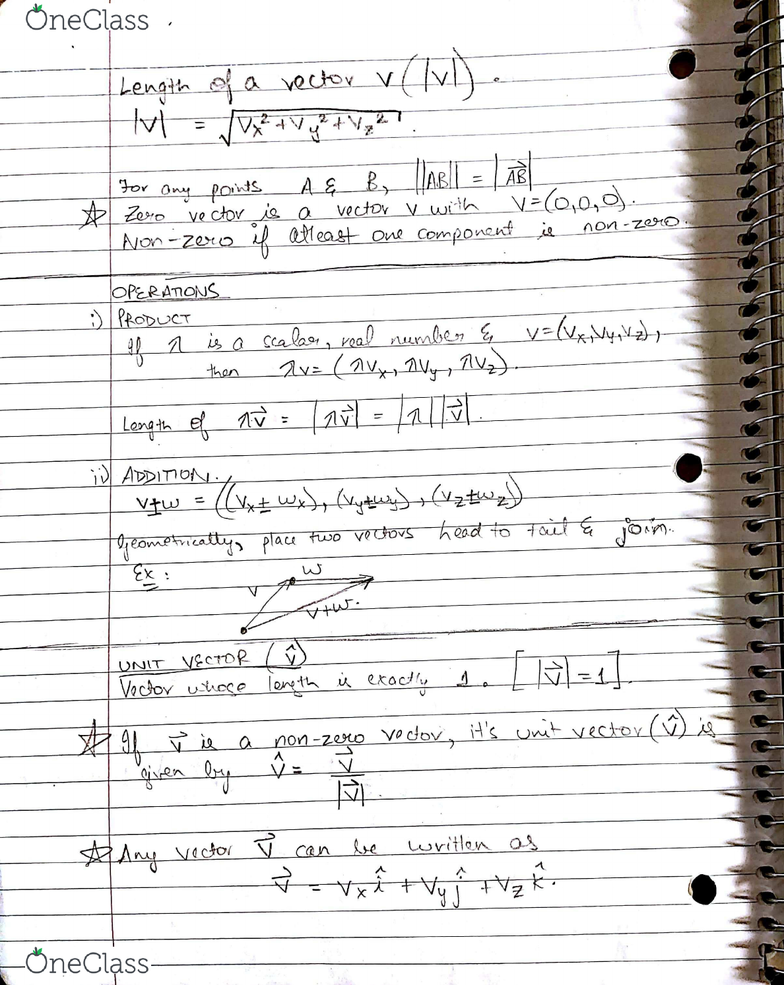 OneClass
Length of a vector v (|v|).
|v| = √(Vx² + Vy² + Vz²)
For any points A & B, ||AB|| = |AB→|
☆ Zero vector is a vector v with V=(0,0,0).
Non-zero if atleast one component is non-zero.
OPERATIONS
i) PRODUCT
If λ is a scalar, real number & v=(Vx,Vy,Vz),
then λv= (λVx, λVy, λVz).
Length of λv→ = |λv→| = |λ||v→|.
ii) ADDITION.
v±w = ((Vx±Wx), (Vy±Wy), (Vz±Wz))
Geometrically, place two vectors head to tail & join.
Ex:
w
v
v+w.
UNIT VECTOR (v̂)
Vector whose length is exactly 1. [|v→|=1].
☆ If v→ is a non-zero vector, it's unit vector (v̂) is
given by v̂ = v→
|v→|
☆ Any vector v→ can be written as
v→ = Vx î + Vy ĵ + Vz k̂.
OneClass